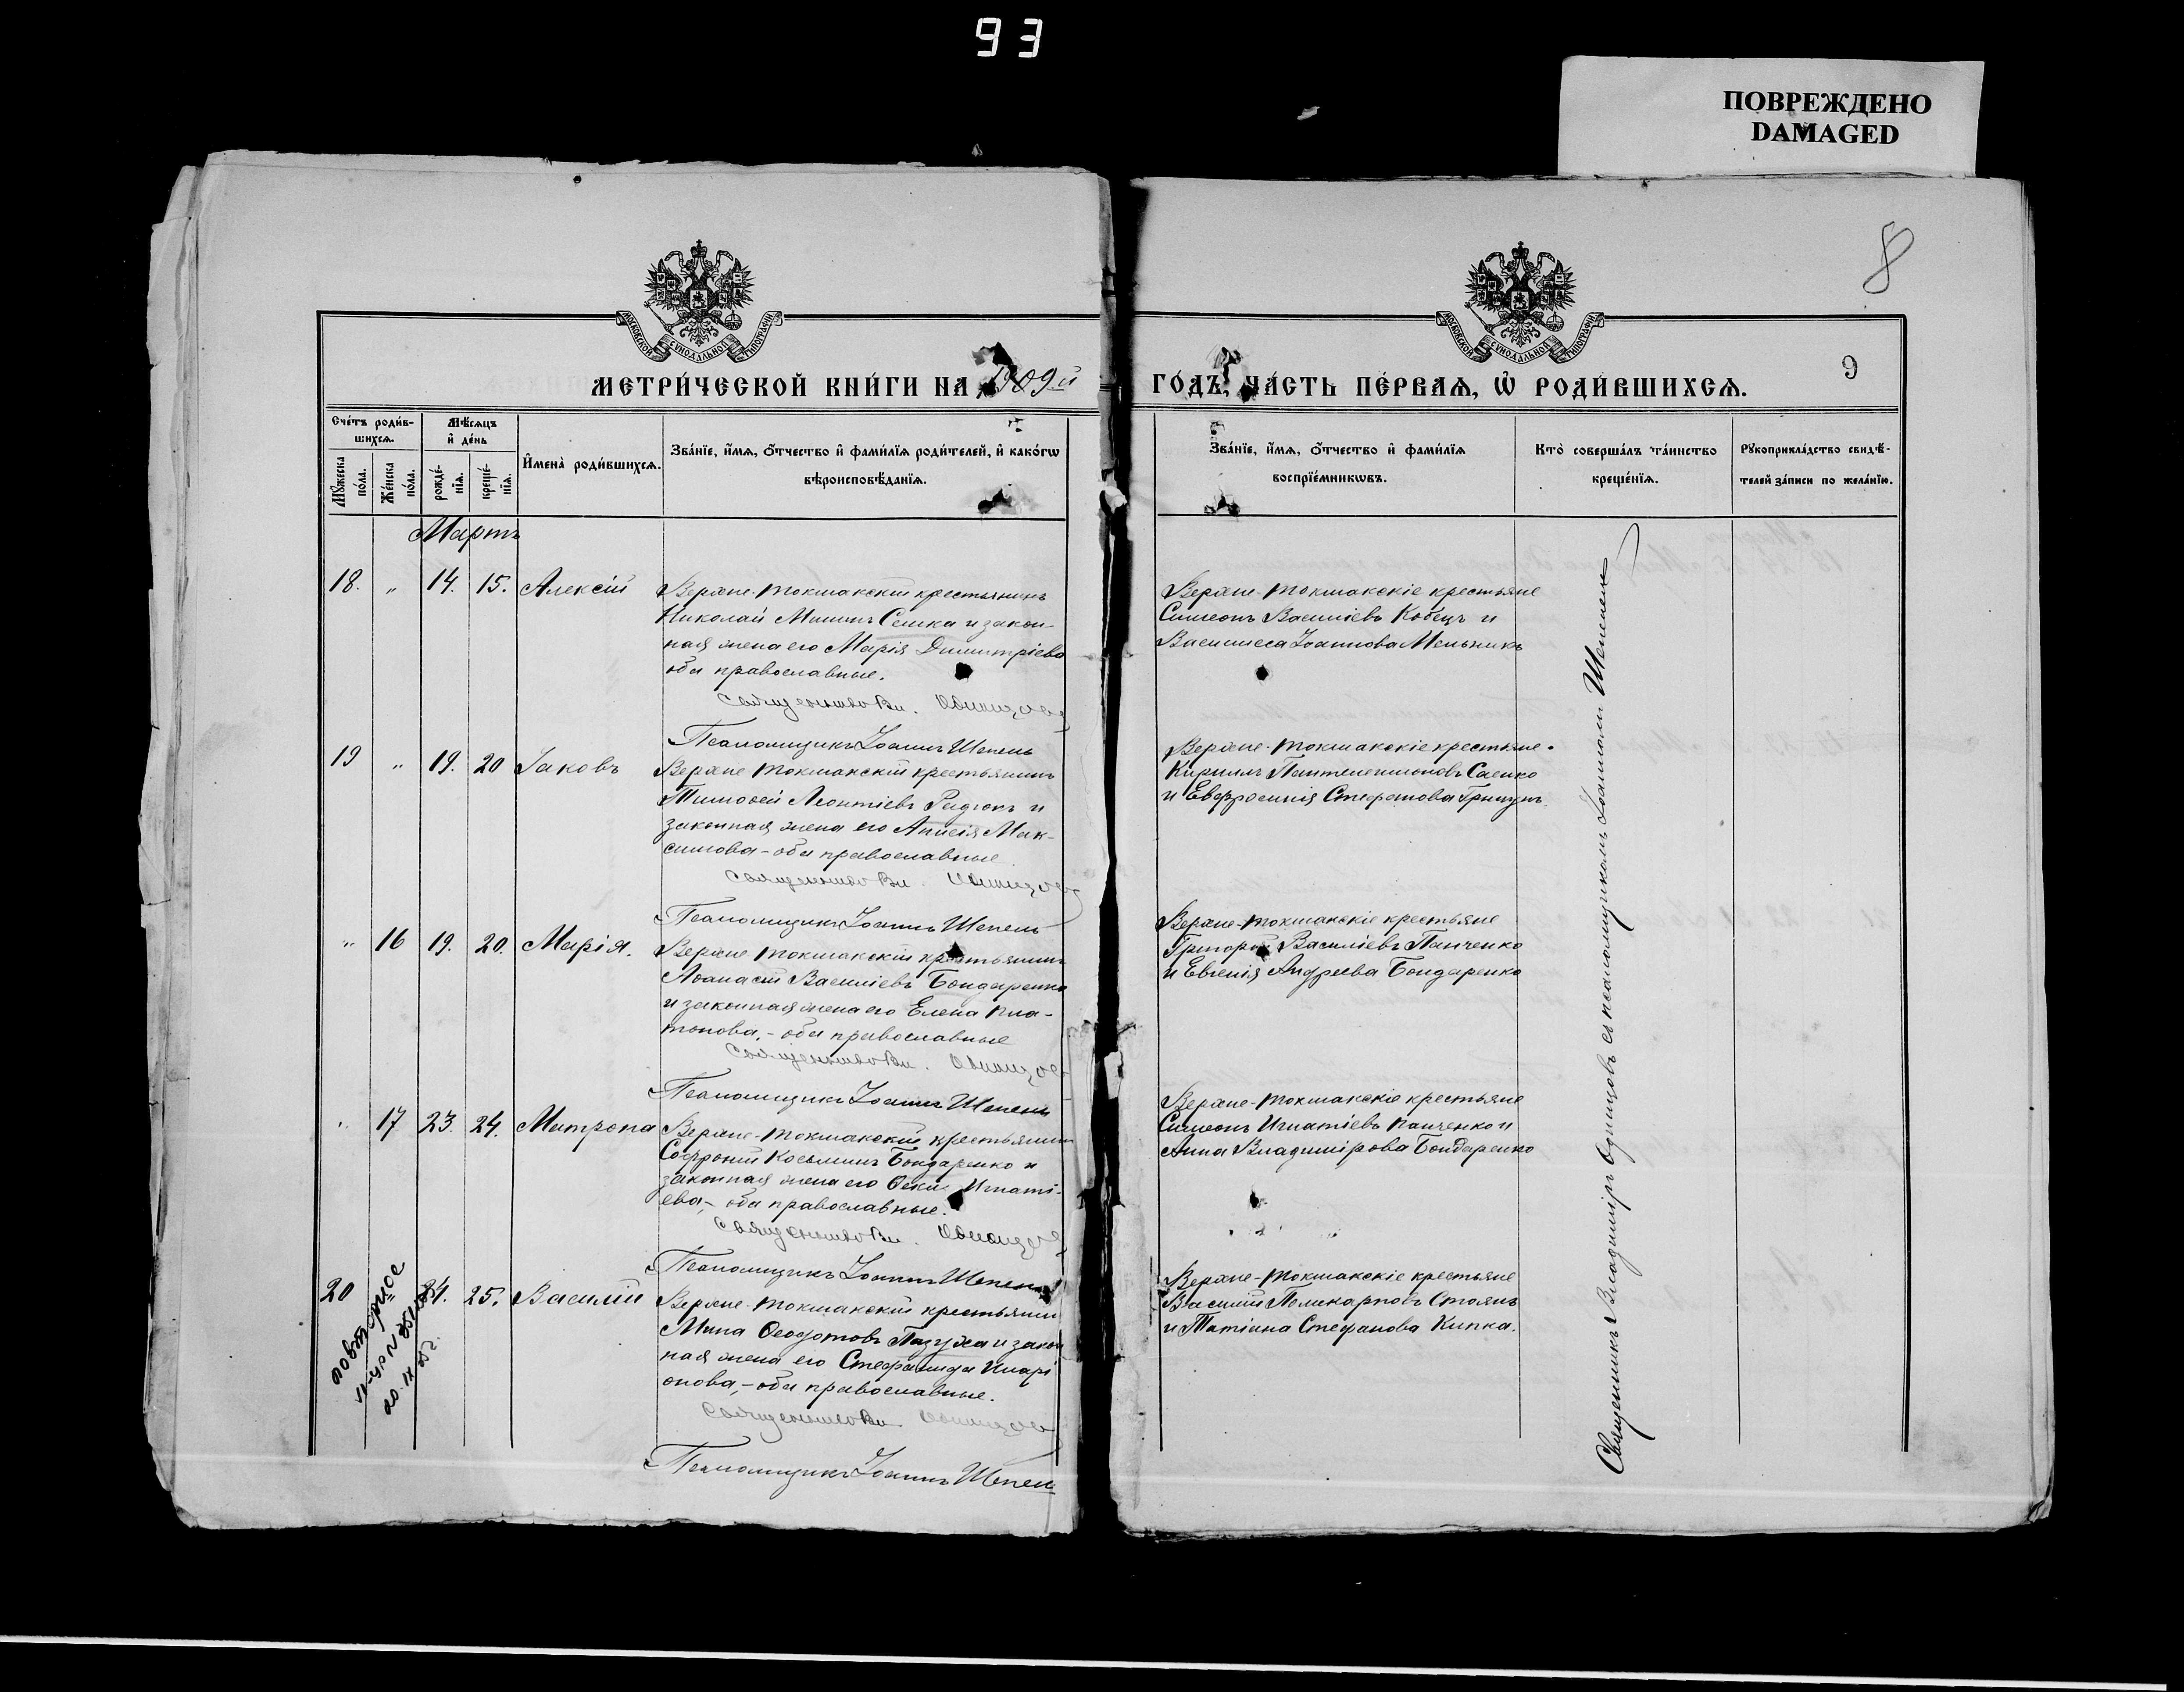 93
ПОВРЕЖДЕНО
DAMAGED
8
9
МОСКОВСКОЙ СѴНОДАЛЬНОЙ ТИПОГРАФІИ
МОСКОВСКОЙ СѴНОДАЛЬНОЙ ТИПОГРАФІИ
МЕТРИ́ЧЕСКОЙ КНИ́ГИ НА 1909й
ГО́ДЪ, ЧА́СТЬ ПЕ́РВАѦ, Ѽ РОДИ́ВШИХСѦ.
Сче́тъ роди́в-
шихсѧ.
Мꙋ́жеска по́ла.
Же́нска по́ла.
Мѣ́сѧцъ
и҆ де́нь
рожде́-
нїѧ.
креще́-
нїѧ.
И҆мена̀ роди́вшихсѧ.
Зва́нїе, и҆́мѧ, ѻ҆́тчество и҆ фами́лїѧ роди́телей, и҆ како́гѡ
вѣроисповѣ́данїѧ.
Зва́нїе, и҆́мѧ, ѻ҆́тчество и҆ фами́лїѧ
воспрїе́мникѡвъ.
Кто̀ соверша́лъ та́инство
креще́нїѧ.
Рꙋкоприкла́дство свидѣ́-
телей за́писи по жела́нїю.
Мартъ
18. " 14. 15. Алексій
Верхне-Токмакскій крестьянинъ
Николай Мининъ Семка и закон-
ная жена его Марія Димитріева
оба православные.
Священникъ Вл. Одинцовъ
Псаломщикъ Іоаннъ Шепель
Верхне-Токмакскіе крестьяне
Симеонъ Василіевъ Кобецъ и
Василисса Іоаннова Мельникъ
19 " 19. 20 Іаковъ
Верхне Токмакскій крестьянинъ
Тимоѳей Леонтіевъ Редюкъ и
законная жена его Анисія Мак-
симова - оба православные
Священникъ Вл. Одинцовъ
Псаломщикъ Іоаннъ Шепель
Верхне-Токмакскіе крестьяне
Кириллъ Пантелеимоновъ Саенко
и Евфросинія Стефанова Грицунъ
" 16 19. 20. Марія.
Верхне Токмакскій крестьянинъ
Аѳанасій Василіевъ Бондаренко
и законная жена его Елена Пла-
тонова, - оба православные
Священникъ Вл. Одинцовъ
Псаломщикъ Іоаннъ Шепель
Верхне-Токмакскіе крестьяне
Григорій Василіевъ Панченко
и Евгенія Андреева Бондаренко
" 17 23. 24. Матрона
Верхне-Токмакскій крестьянинъ
Софроній Косьминъ Бондаренко и
законная жена его Ѳекла Игнаті-
ева, - оба православные.
Священникъ Вл. Одинцовъ
Псаломщикъ Іоаннъ Шепель
Верхне-Токмакскіе крестьяне
Симеонъ Игнатіевъ Панченко и
Анна Владимірова Бондаренко
20 " 24. 25. Василій
повторное
Верхне-Токмакскій крестьянинъ
Мина Ѳеодотовъ Пазуха и закон
ная жена его Стефанида Иларі
онова, - оба православные.
Священникъ Вл. Одинцовъ
Псаломщикъ Іоаннъ Шепель
Верхне-Токмакскіе крестьяне
Василій Поликарповъ Стоянъ
и Татіана Стефанова Кипка.
Священникъ Владиміръ Одинцовъ съ псаломщикомъ Іоанномъ Шепелемъ